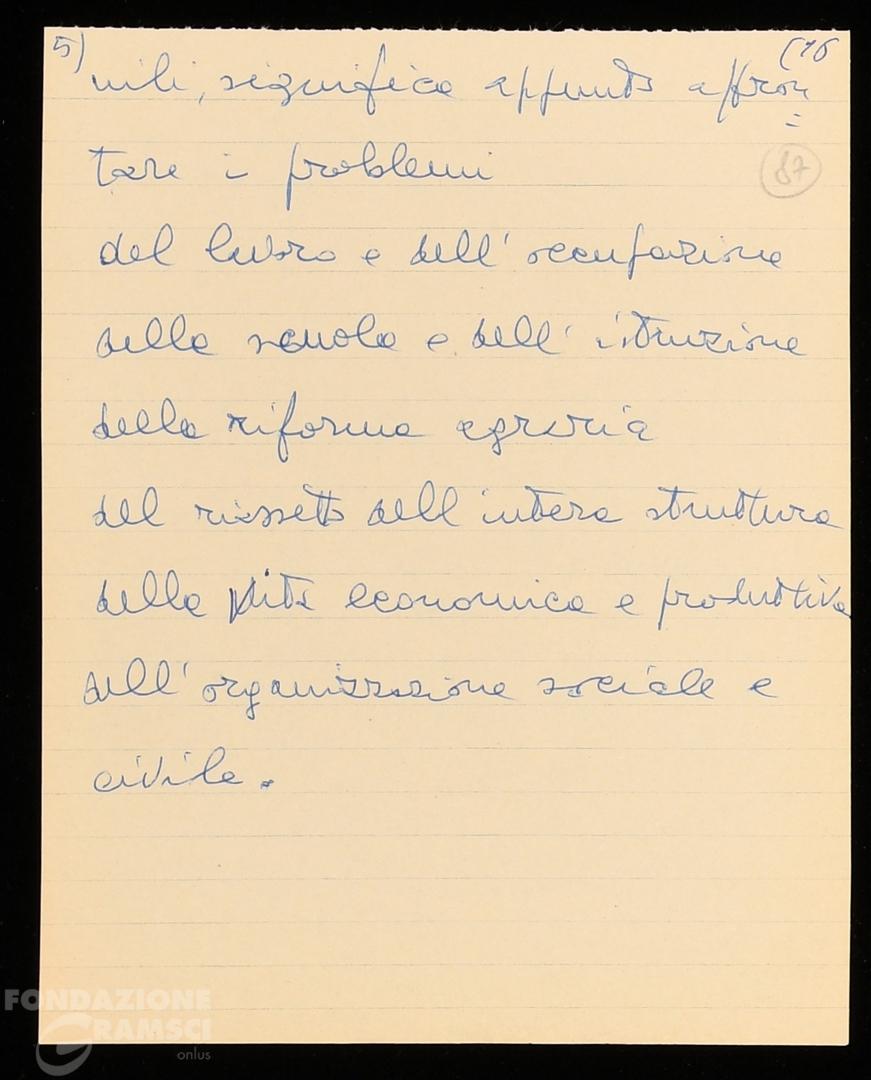 5) (16
nili, significa appunto affron
=
tare i problemi
87
del lavoro e dell'occupazione
della scuola e dell'istruzione
della riforma agraria
del riassetto dell'intera struttura
della vita economica e produttiva
dell'organizzazione sociale e
civile.
FONDAZIONE
GRAMSCI
onlus